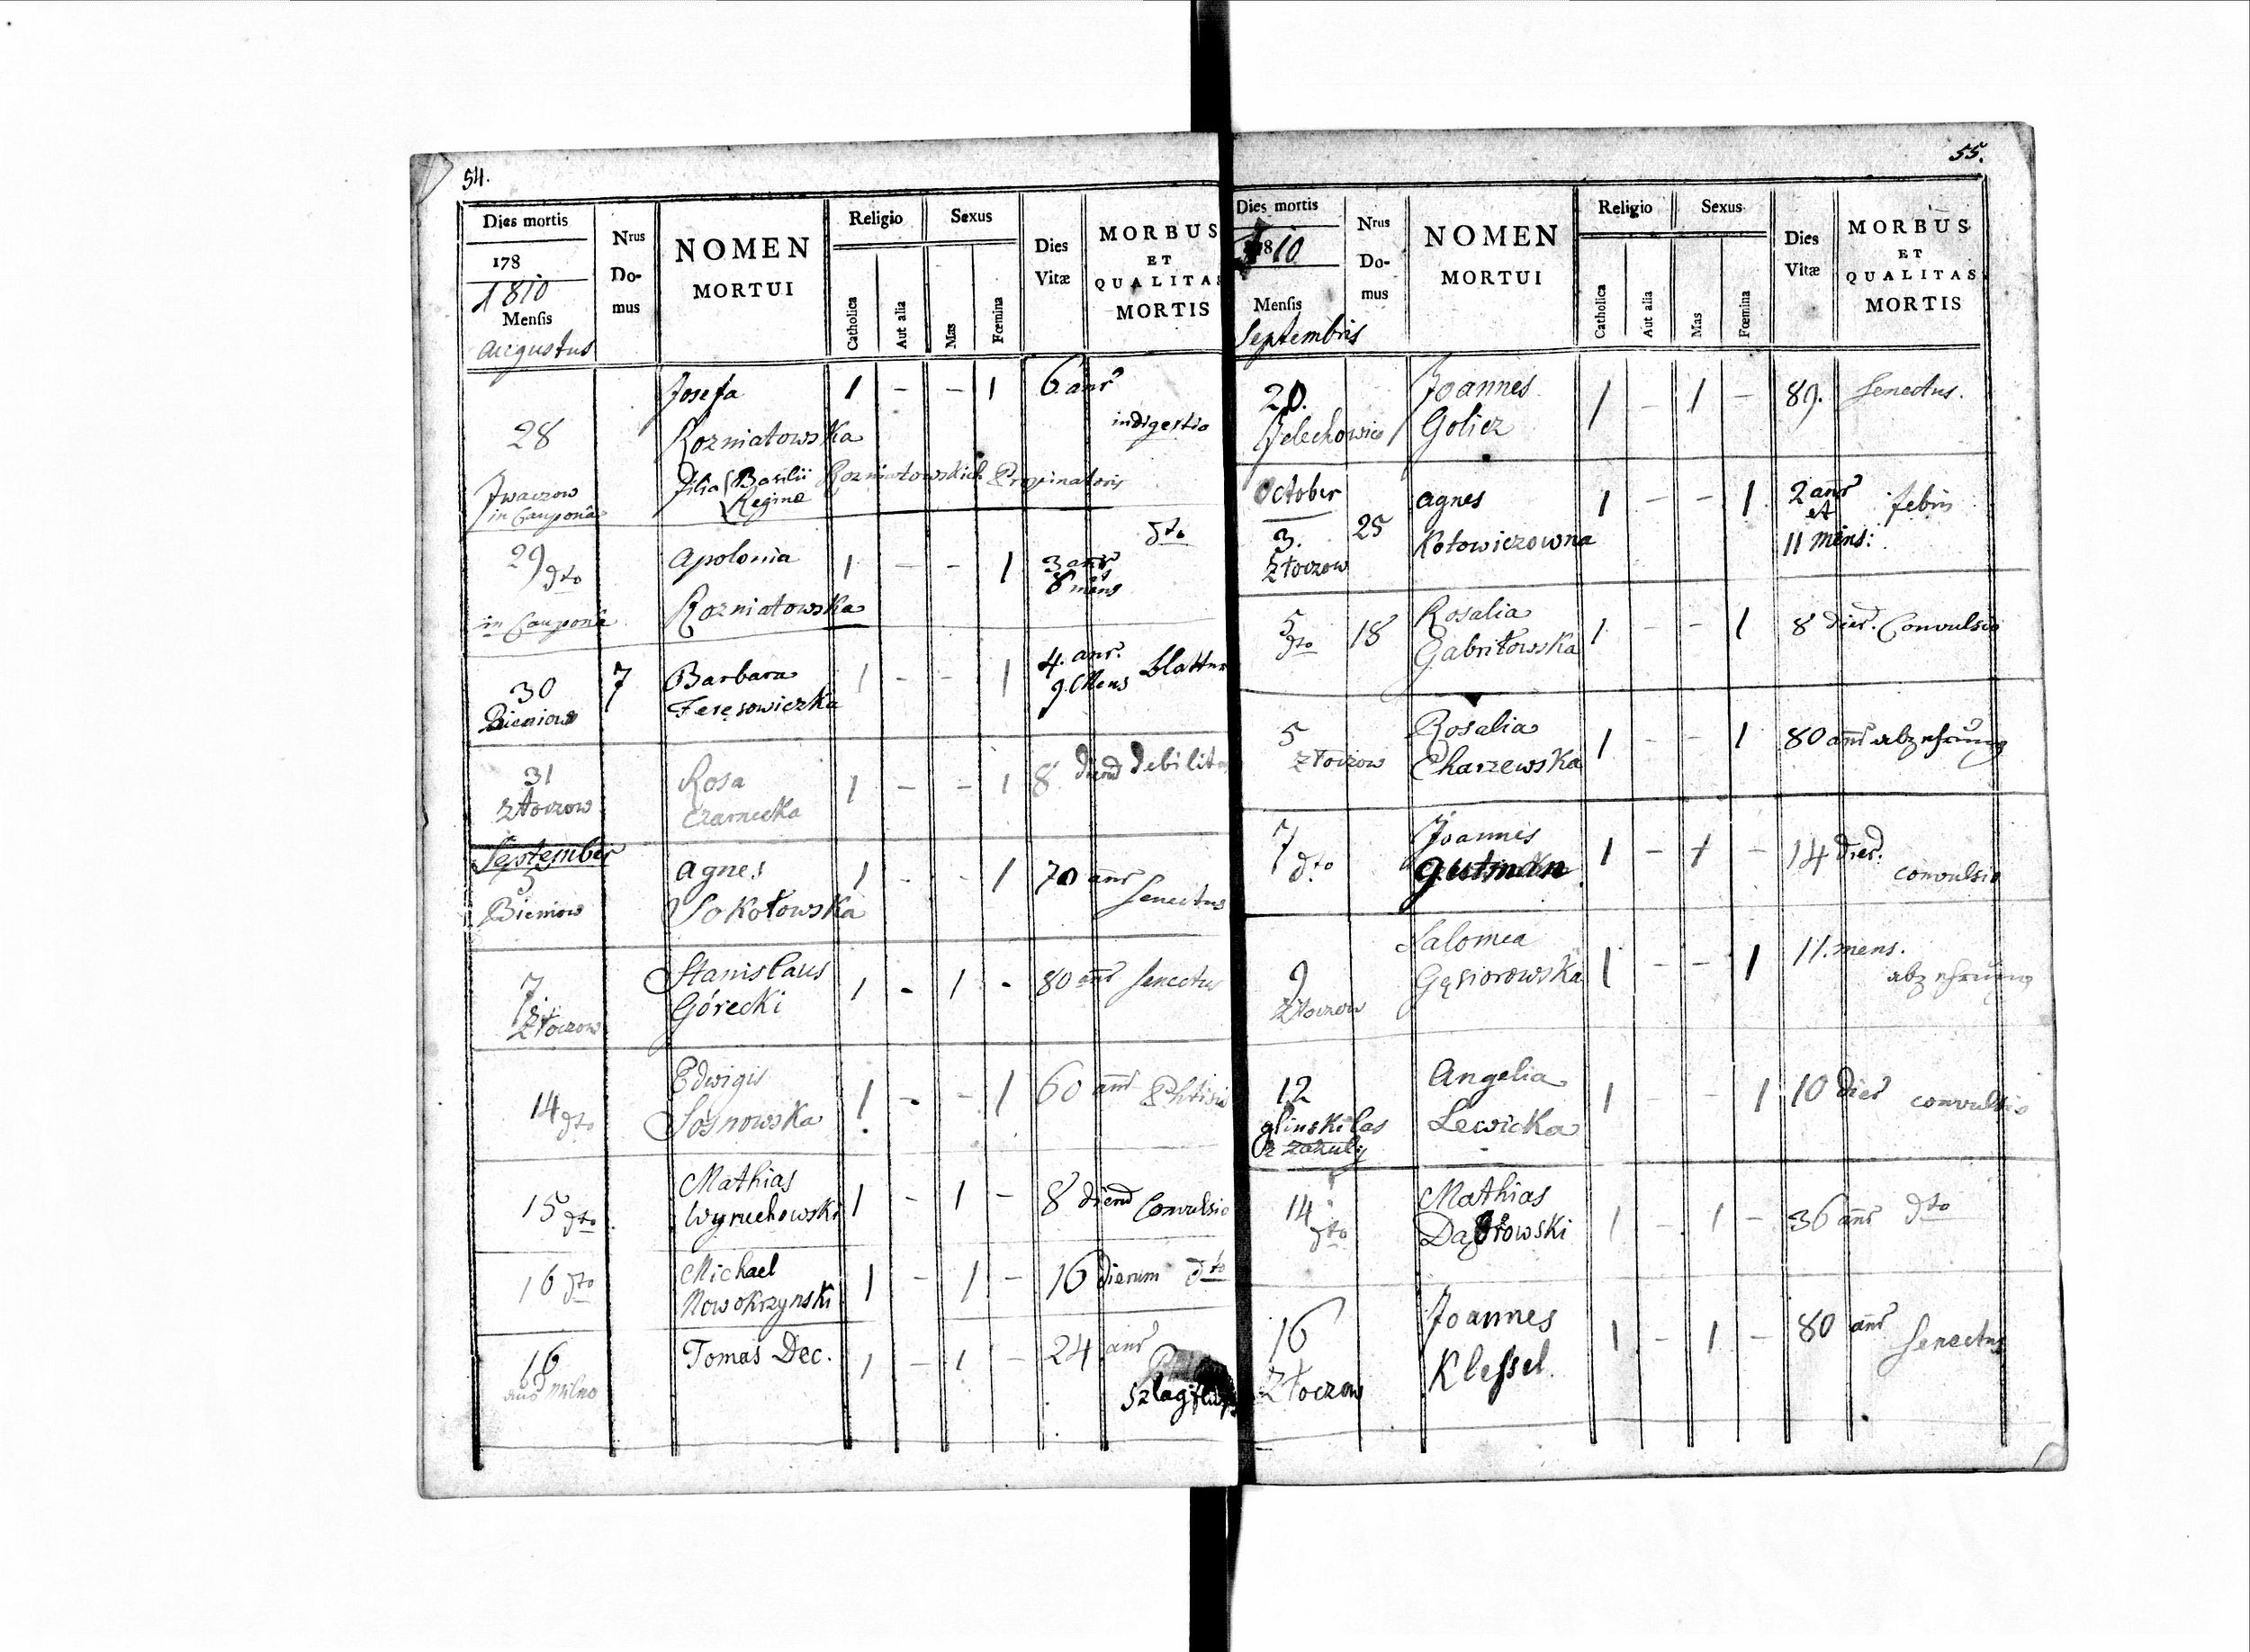 54.
Dies mortis
178
1810
Mensis
Augustus
Nrus
Do-
mus
NOMEN
MORTUI
Religio
Catholica
Aut alia
Sexus
Mas
Fœmina
Dies
Vitæ
MORBUS
ET
QUALITAS
MORTIS
28 Josefa 1 - - 1 6 anr
Rozniatowska indigestio
Jwaczow
in Cauponâ
filia Basilii Rozniatowskich Propinatoris
Regine
29 dto Apolonia 1 - - 1 3 anr dto
8 mens
in Cauponâ Rozniatowska
30 7 Barbara 1 - - 1 4. anr.
9. Mens
Bieniow
31 Rosa 1 - - 1 8 dierum
Złoczow Czarnecka
September
5 Agnes 1 - - 1 70 anr
Bieniow Sokołowska Senectus
7 Stanislaus 1 - 1 - 80 anr Senectus
Złoczow Górecki
14 dto Edwigis 1 - - 1 60 anr Phtisis
Sosnowska
15 dto Mathias 1 - 1 - 8 dierum Convulsio
Wyruchowski
16 dto Michael 1 - 1 - 16 dierum dto
Nowokrzynski
16 Tomas Dec. 1 - 1 - 24 anr
aus Milno
55.
Dies mortis
1810
Mensis
Septembris
Nrus
Do-
mus
NOMEN
MORTUI
Religio
Catholica
Aut alia
Sexus
Mas
Fœmina
Dies
Vitæ
MORBUS
ET
QUALITAS
MORTIS
20. Joannes 1 - 1 - 89. Senectus.
Jelechowic Golicz
October
3. 25 Agnes 1 - - 1 2 anr febris
et
Złoczow Kotowiczowna 11 mens:
5 dto 18 Rosalia 1 - - 1 8 dier. Convulsio
Gabriłowska
5 Rosalia 1 - - 1 80 anr abzehrung
Złoczow Charzewska
7 dto Joannes 1 - 1 - 14 dier.
Gutman convulsio
9 Salomea 1 - - 1 11. mens.
Złoczow Gąsiorowska abzehrung
12 Angelia 1 - - 1 10 dier convulsio
glinski las Lewicka
14 dto Mathias 1 - 1 - 36 anr dto
Dąbrowski
16 Joannes 1 - 1 - 80 anr Senectus
Złoczow Klessel.